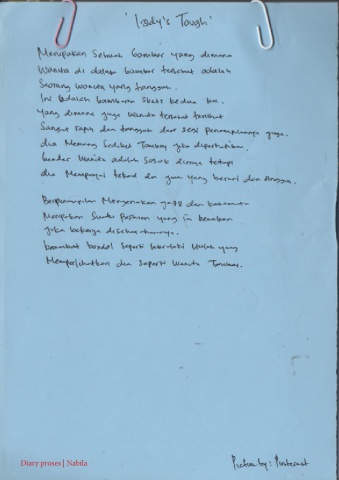 'Lady's Tough'
Merupakan Sebuah Gambar yang dimana
Wanita di dalam Gambar tersebut adalah
Seorang wanita yang tangguh.
Ini adalah gambaran Sketsa kedua
yang dimana juga wanita tersebut terlihat
Sangat rapih dan tangguh dari segi Penampilannya juga.
dia Memang Sedikit Tomboy jika diperhatikan.
Gender Wanita adalah Sosok dirinya tetapi
dia Mempunyai tekad dan yang berani dan Anggun.
Berpenampilan Mengenakan dan
Merupakan Suatu Fashion yang ia kenakan
jika bekerja
rambut bondol Seperti laki-laki yang
Memperlihatkan dia Seperti Wanita Tomboy.
Picture by : Pinterest
Diary proses | Nabila